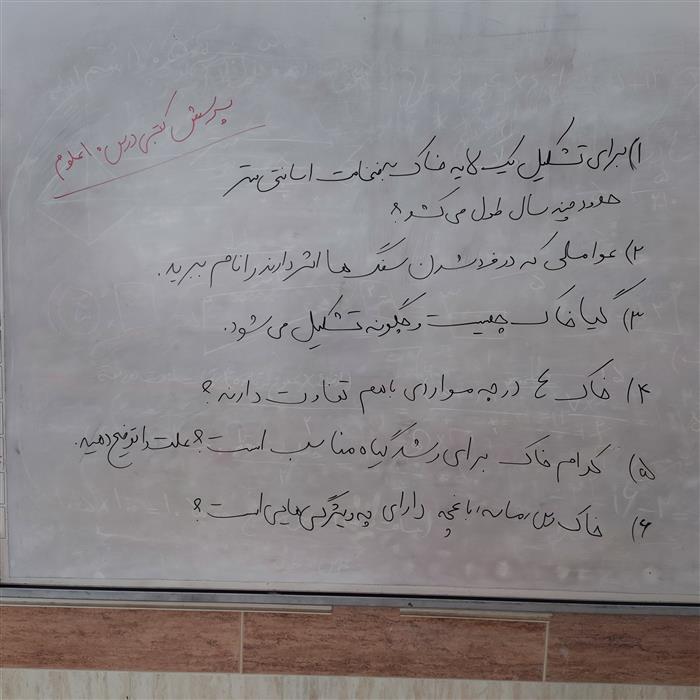 پرسش کتبی درس ۱۰ علوم
۱) برای تشکیل یک لایه خاک به ضخامت ۱ سانتی متر
حدود چند سال طول می کشد؟
۲) عواملی که در خرد شدن سنگ ها اثر دارند را نام ببرید.
۳) گیاخاک چیست و چگونه تشکیل می شود.
۴) خاک ها در چه مواردی باهم تفاوت دارند؟
۵) کدام خاک برای رشد گیاه مناسب است؟ علت را توضیح دهید.
۶) خاک باغچه دارای چه ویژگی هایی است؟